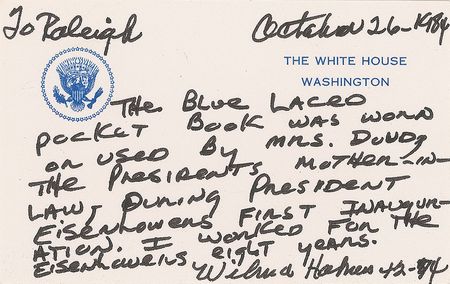 To Raleigh
October 26-1984
THE WHITE HOUSE
WASHINGTON
THE BLUE LACED
POCKET BOOK WAS WORN
OR USED BY MRS. DOUDS
THE PRESIDENTS MOTHER-IN-
LAW, DURING PRESIDENT
EISENHOWERS FIRST INAUGUR-
ATION. I WORKED FOR THE
EISENHOWERS EIGHT YEARS.
Wilma